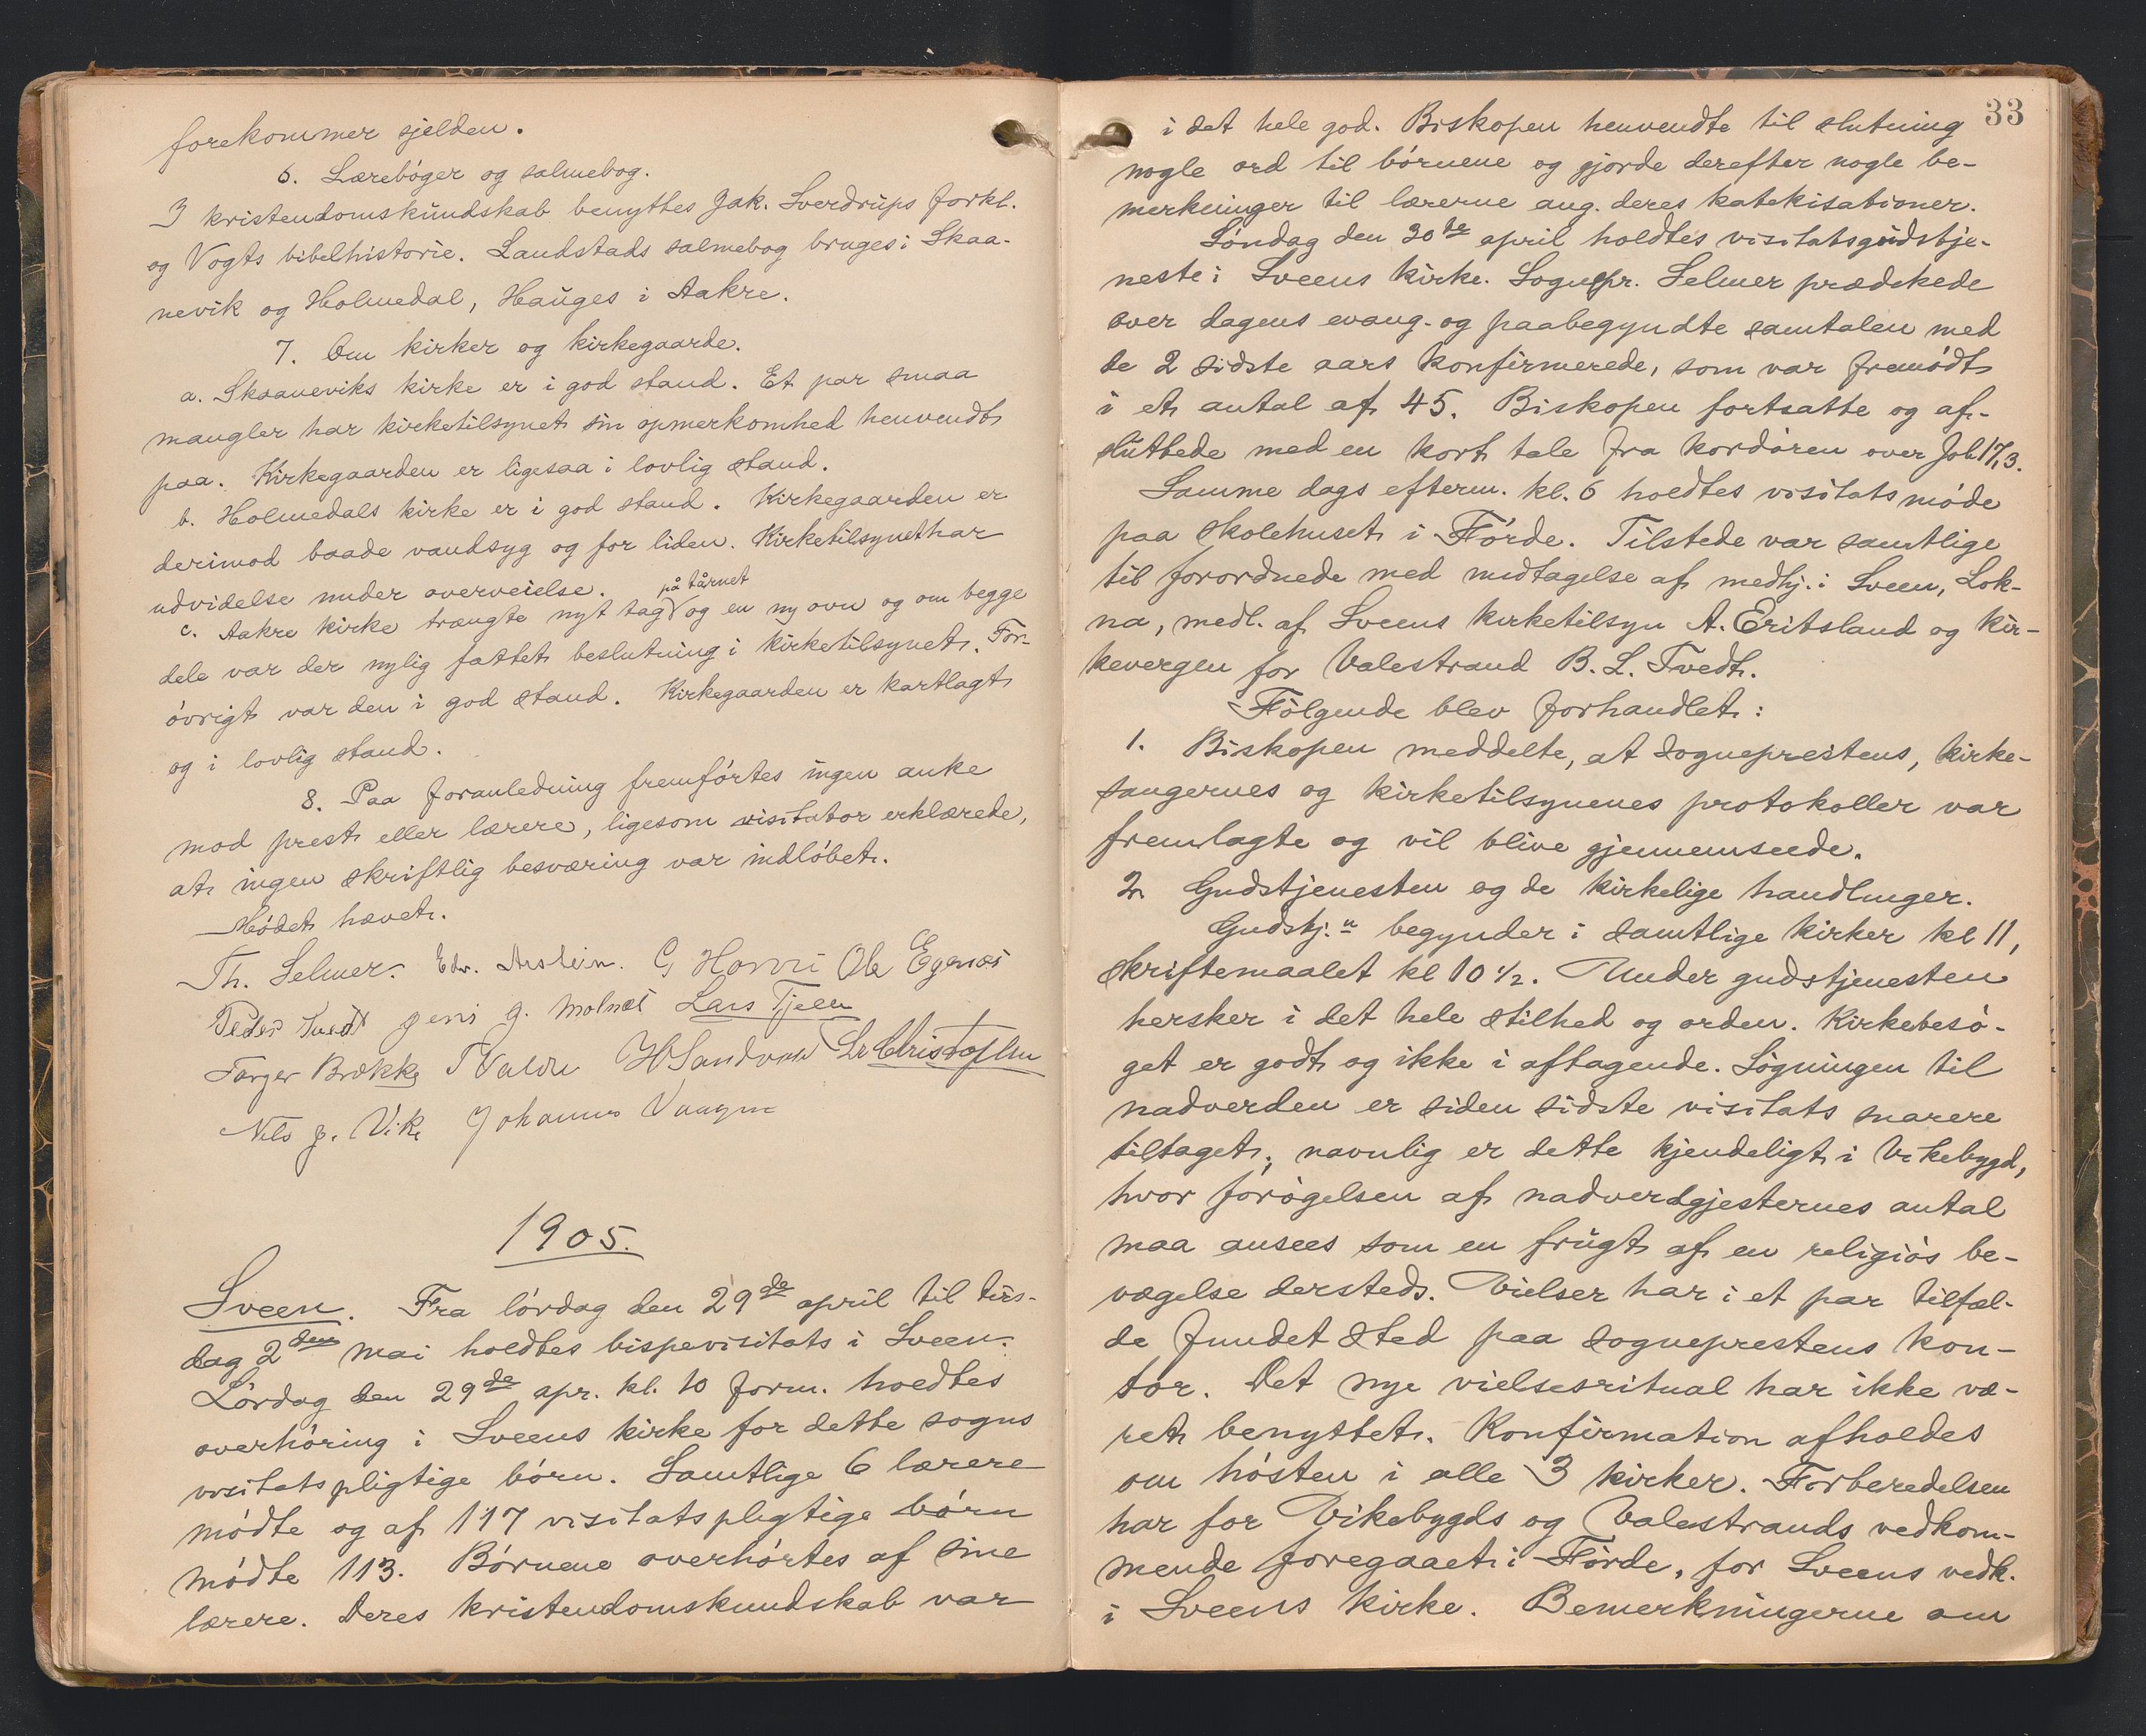 forekommer sjelden.
6. Lærebøger og salmebog.
I kristendomskundskab benyttes Jak. Sverdrups forkl.
og Vogts bibelhistorie. Landstads salmebog bruges i Skaa-
nevik og Holmedal, Hauges i Aakre.
7. Om kirker og kirkegaarde.
a. Skaaneviks kirke er i god stand. Et par smaa
mangler har kirketilsynet sin opmerksomhed henvendt
paa. Kirkegaarden er ligesaa i lovlig stand.
b. Holmedals kirke er i god stand. Kirkegaarden er
derimod baade vandsyg og for liden. Kirketilsynet har
udvidelse under overveielse.
på tårnet
c. Aakre kirke trængte nyt tag V og en ny ovn og om begge
dele var der nylig fattet beslutning i kirketilsynet. For-
øvrigt var den i god stand. Kirkegaarden er kartlagt
og i lovlig stand.
8. Paa foranledning fremførtes ingen anke
mod prest eller lærere, ligesom visitator erklærede,
at ingen skriftlig besværing var indløbet.
Mødet hævet.
Th. Selmer. Edv. Ole Egenæs
Peder Tvedt Jens J. Molnes Lars Tjelle
Torger Brække T Valen H Sandvik
Nils J. Vik Johannes Vaagen
1905.
Sveen. Fra lørdag den 29de april til tirs-
dag 2den mai holdtes bispevisitats i Sveen.
Lørdag den 29de apr. kl. 10 form. holdtes
overhøring i Sveens kirke for dette sogns
visitatspligtige børn. Samtlige 6 lærere
mødte og af 117 visitatspligtige børn
mødte 113. Børnene overhørtes af sine
lærere. Deres kristendomskundskab var
33
i det hele god. Biskopen henvendte til slutning
nogle ord til børnene og gjorde derefter nogle be-
merkninger til lærerne ang. deres katekisationer.
Søndag den 30de april holdtes visitatsgudstje-
neste i Sveens kirke. Sognepr. Selmer prædikede
over dagens evang. og paabegyndte samtalen med
de 2 sidste aars konfirmerede, som var fremødt
i et antal af 45. Biskopen fortsatte og af-
sluttede med en kort tale fra kordøren over Joh 17,3.
Samme dags efterm. kl. 6 holdtes visitatsmøde
paa skolehuset i Førde. Tilstede var samtlige
til forordnede med undtagelse af medhj. i Sveen, Lok-
na, medl. af Sveens kirketilsyn A. Eritsland og kir-
kevergen for Valestrand B. L. Tvedt.
Følgende blev forhandlet:
1. Biskopen meddelte, at sogneprestens, kirke-
sangernes og kirketilsynenes protokoller var
fremlagte og vil blive gjennemseede.
2. Gudstjenesten og de kirkelige handlinger.
Gudstj.n begynder i samtlige kirker kl 11,
skriftemaalet kl 10 1/2. Under gudstjenesten
hersker i det hele stilhed og orden. Kirkebesø-
get er godt og ikke i aftagende. Søgningen til
nadverden er siden sidste visitats snarere
tiltaget; navnlig er dette kjendeligt i Vikebygd,
hvor forøgelsen af nadverdgjesternes antal
maa ansees som en frugt af en religiøs be-
vægelse dersteds. Vielser har i et par tilfæl-
de fundet sted paa sogneprestens kon-
tor. Det nye vielsesritual har ikke væ-
ret benyttet. Konfirmation afholdes
om høsten i alle 3 kirker. Forberedelsen
har for Vikebygds og Valestrands vedkom-
mende foregaaet i Førde, for Sveens vedk.
i Sveens kirke. Bemerkningerne om